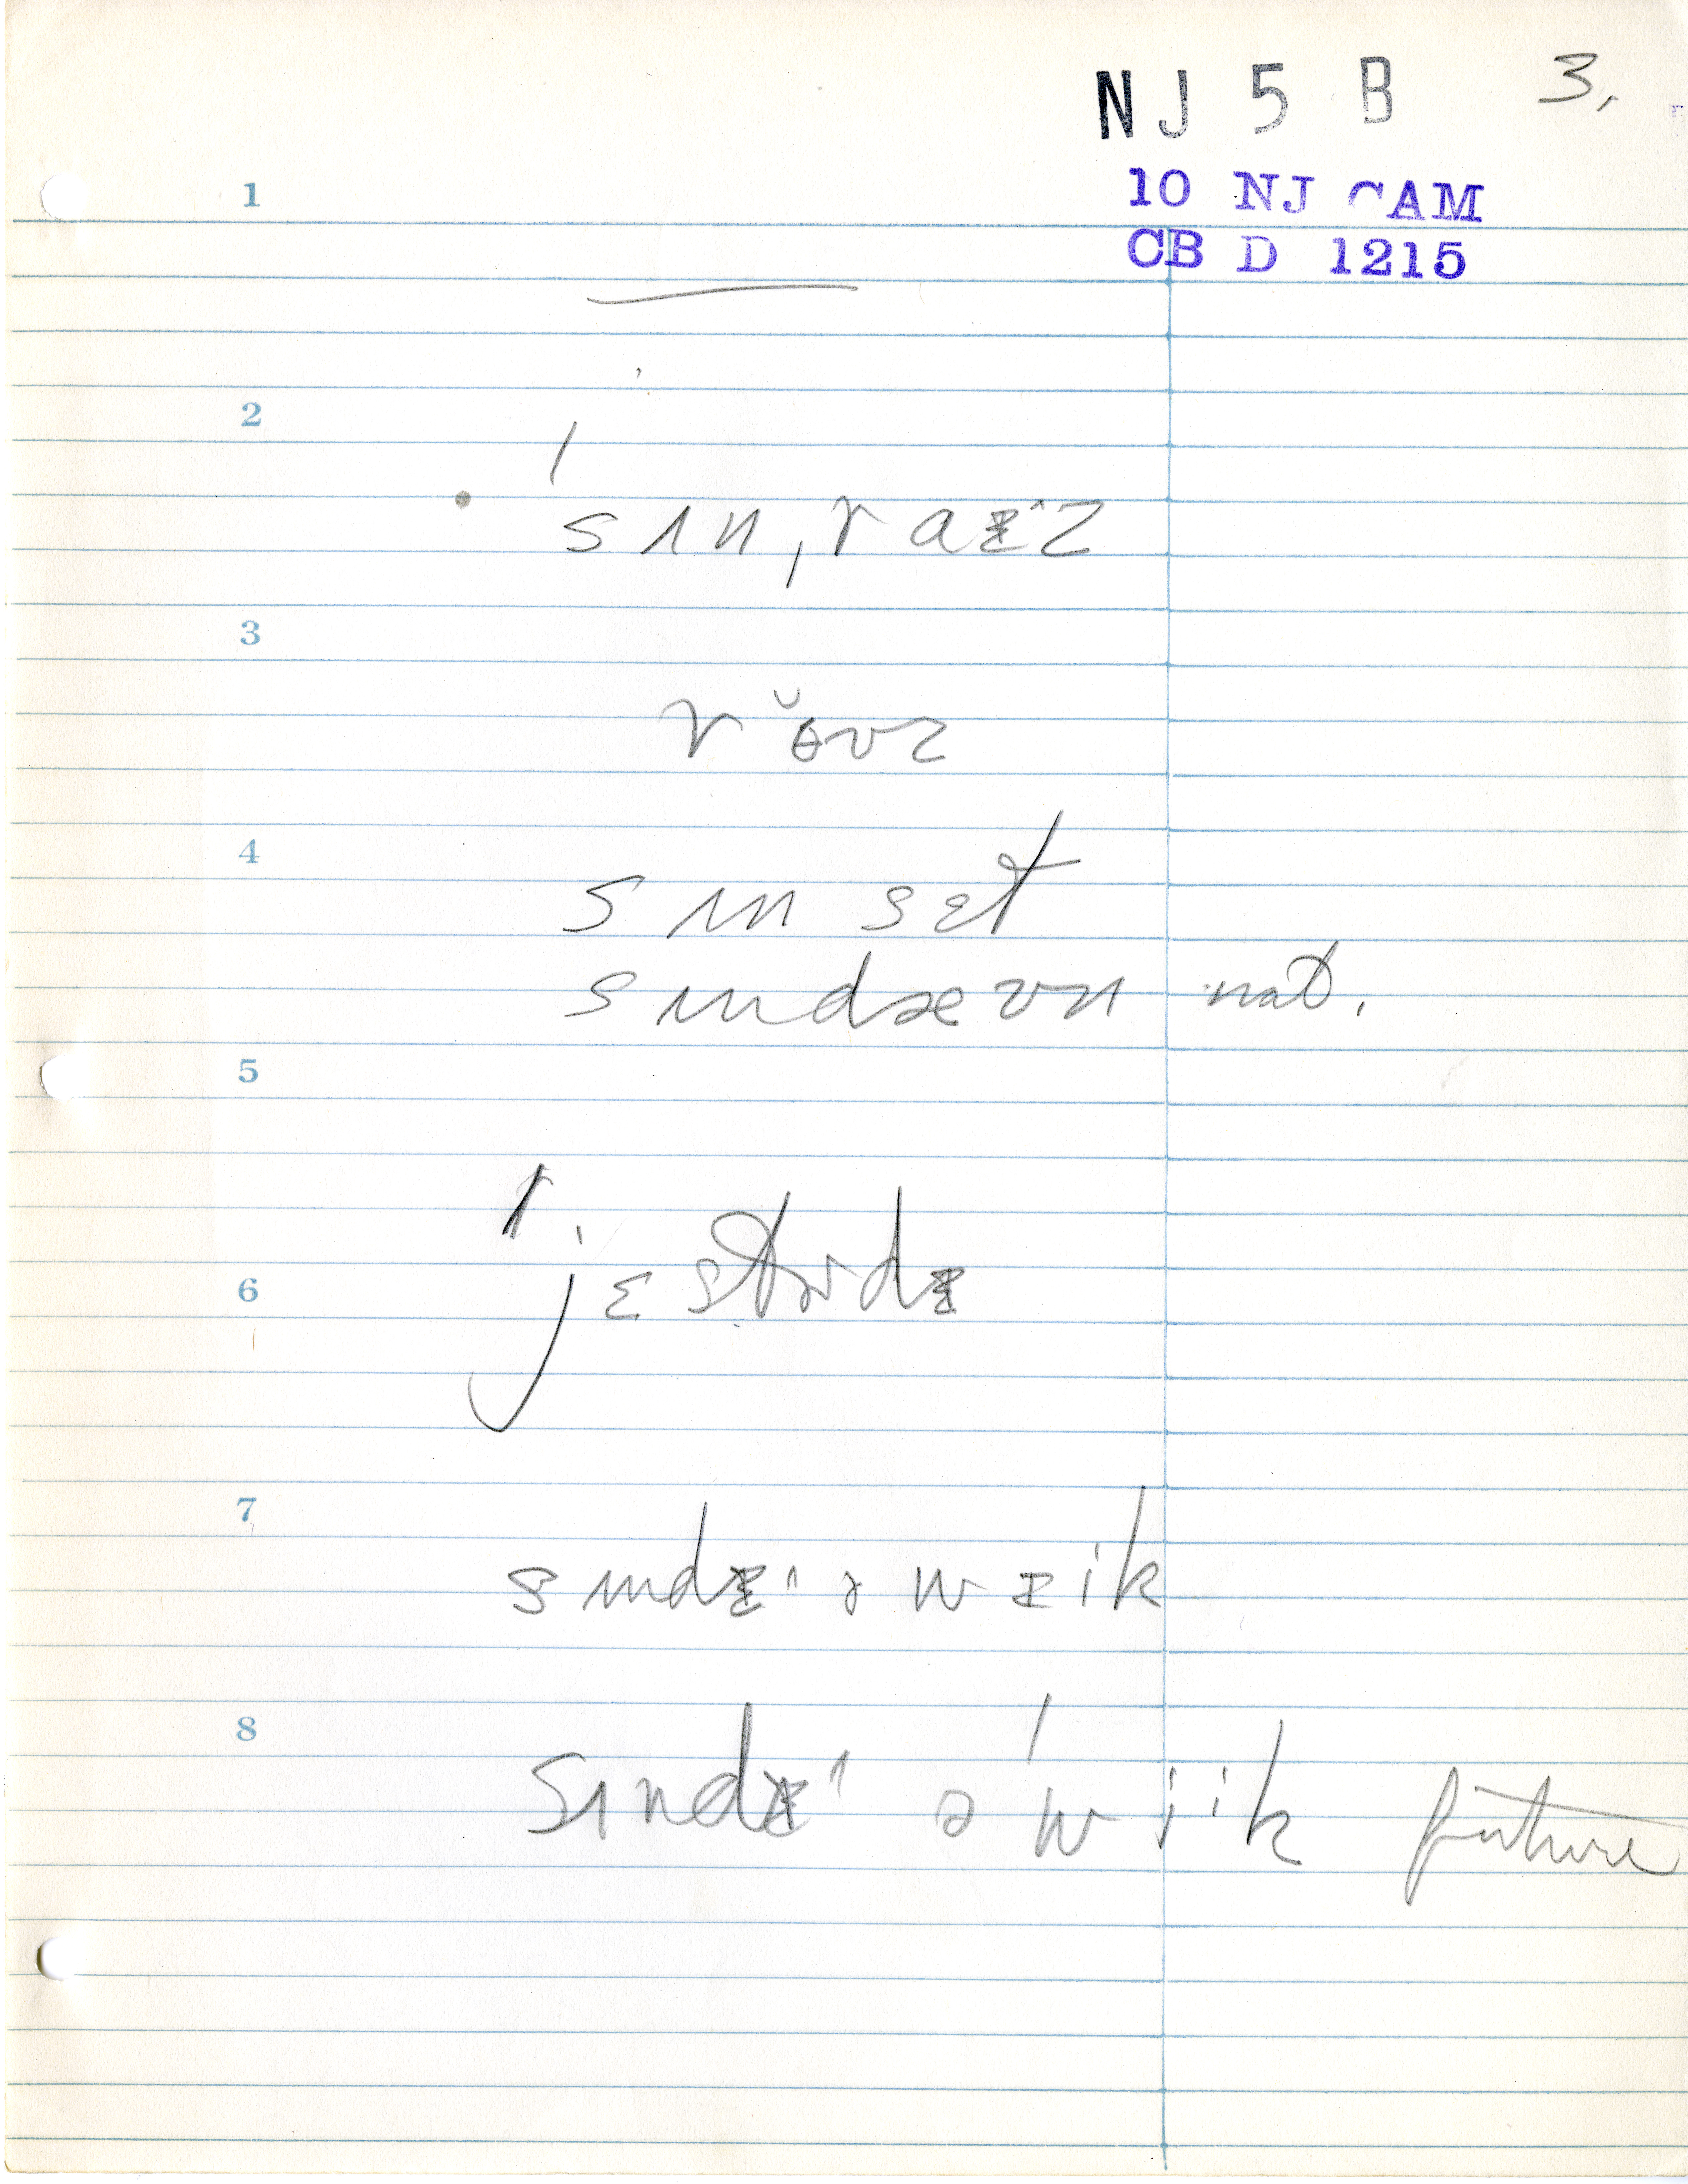 NJ 5 B 3.
10 NJ CAM
CB D 1215
1
2
ˈsʌn,raᵻˑz
3
rŏʊz
4
sʌn sɛt
sʌndæʊn nat.
5
6
ˈjɛstɚdᵻ
7
sʌndᵻˑ ə wik
8
sʌndᵻˑ ə ˈwik future